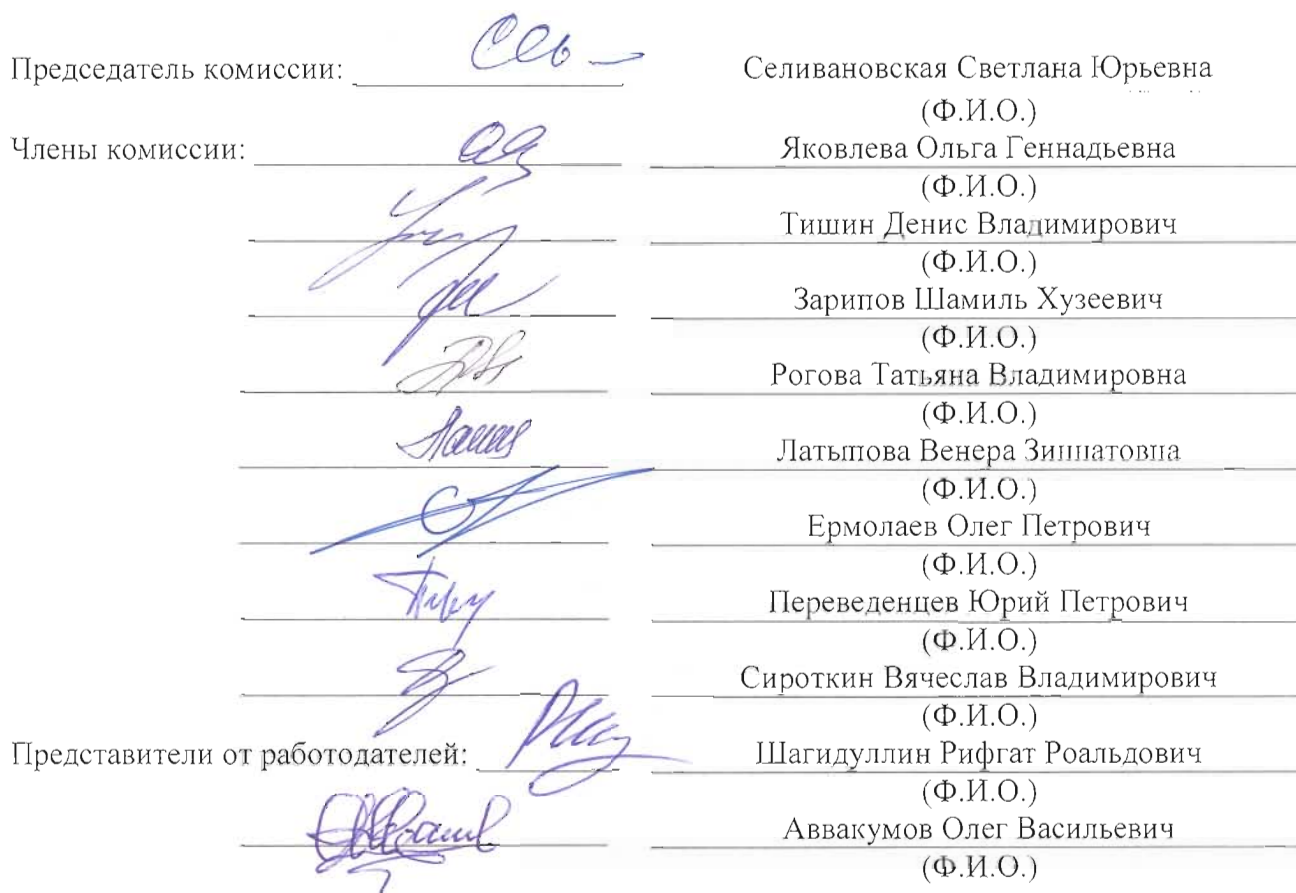 Председатель комиссии: Селивановская Светлана Юрьевна
(Ф.И.О.)
Члены комиссии: Яковлева Ольга Геннадьевна
(Ф.И.О.)
Тишин Денис Владимирович
(Ф.И.О.)
Зарипов Шамиль Хузеевич
(Ф.И.О.)
Рогова Татьяна Владимировна
(Ф.И.О.)
Латыпова Венера Зиннатовна
(Ф.И.О.)
Ермолаев Олег Петрович
(Ф.И.О.)
Переведенцев Юрий Петрович
(Ф.И.О.)
Сироткин Вячеслав Владимирович
(Ф.И.О.)
Представители от работодателей: Шагидуллин Рифгат Роальдович
(Ф.И.О.)
Аввакумов Олег Васильевич
(Ф.И.О.)